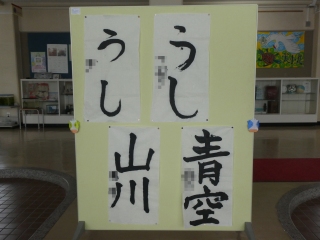 うし
うし
青空
山川